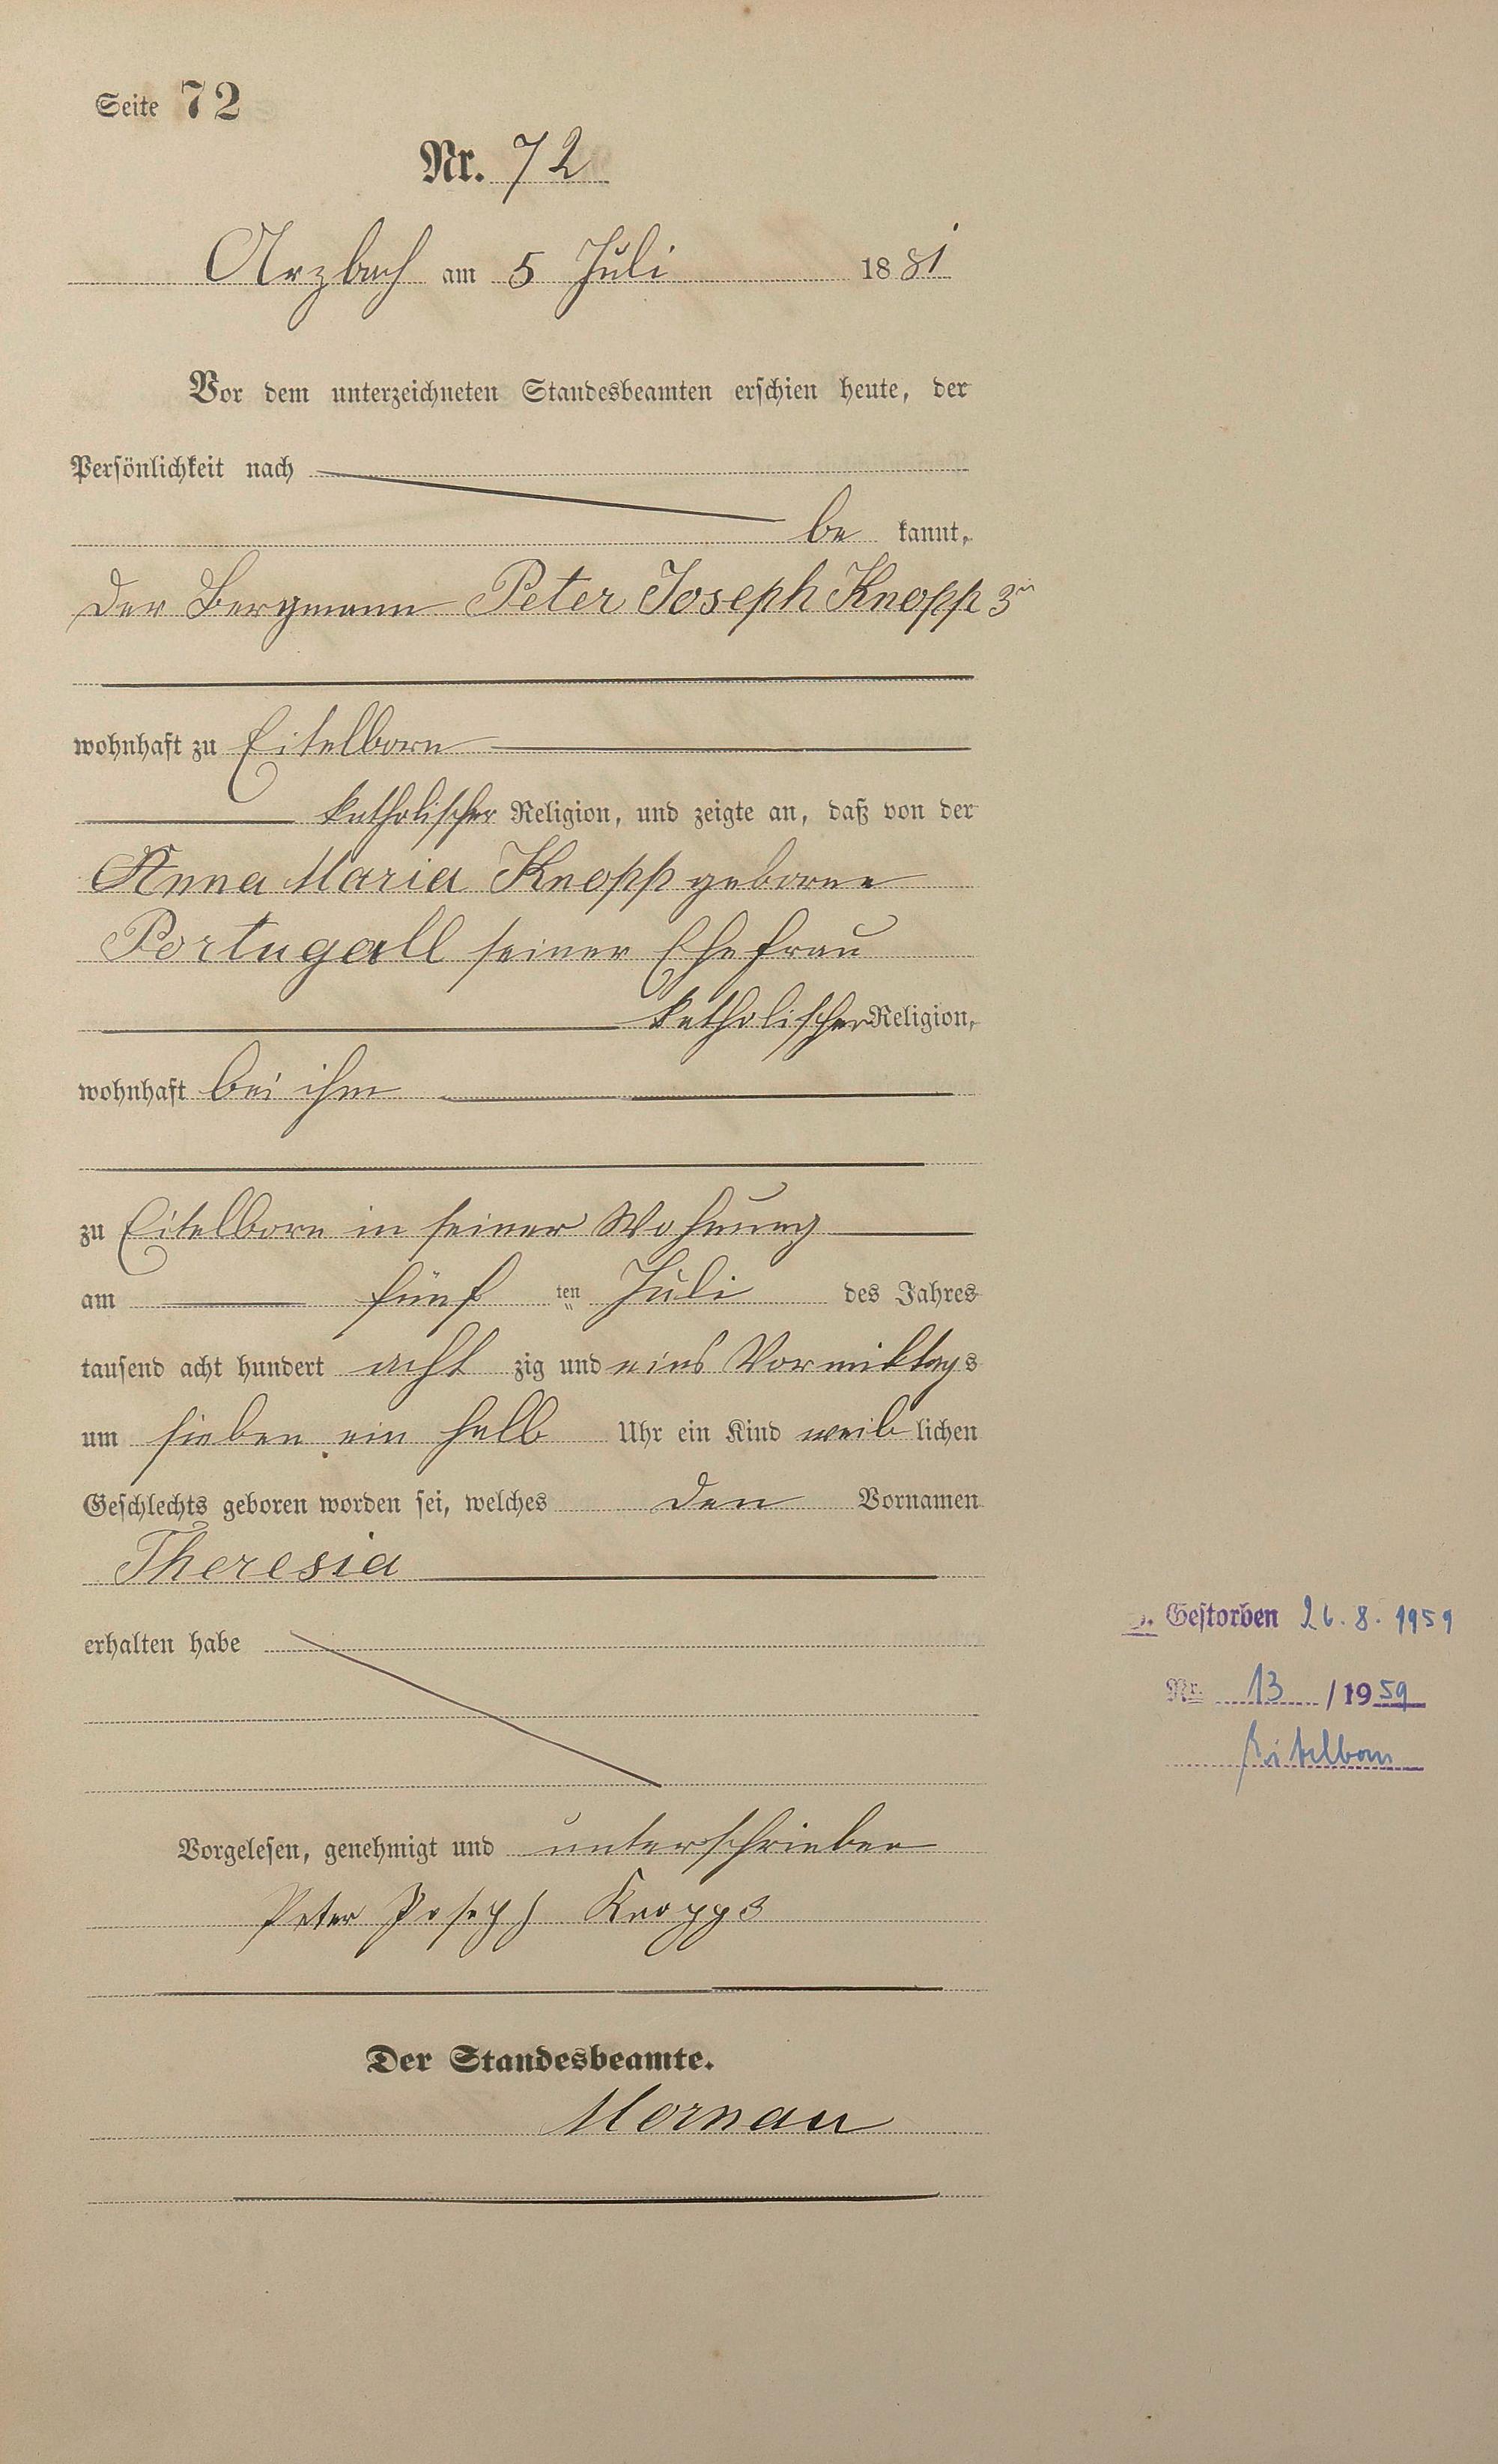 Seite 72
Nr. 72
Arzbach am 5 Juli 1881
Vor dem unterzeichneten Standesbeamten erschien heute, der
Persönlichkeit nach
be kannt,
der Bergmann Peter Joseph Knopp 3r
wohnhaft zu Eitelborn
katholischer Religion, und zeigte an, daß von der
Anna Maria Knopp geborne
Portugall seiner Ehefrau
katholischer Religion,
wohnhaft bei ihm
zu Eitelborn in seiner Wohnung
am fünf ten Juli des Jahres
tausend acht hundert acht zig und eins Vormittags
um sieben ein halb Uhr ein Kind weib lichen
Geschlechts geboren worden sei, welches den Vornamen
Theresia
erhalten habe
Gestorben 26.8.1959
Nr. 13 / 1959
Eitelborn
Vorgelesen, genehmigt und unterschrieben
Peter Joseph Knopp 3
Der Standesbeamte.
Mornau